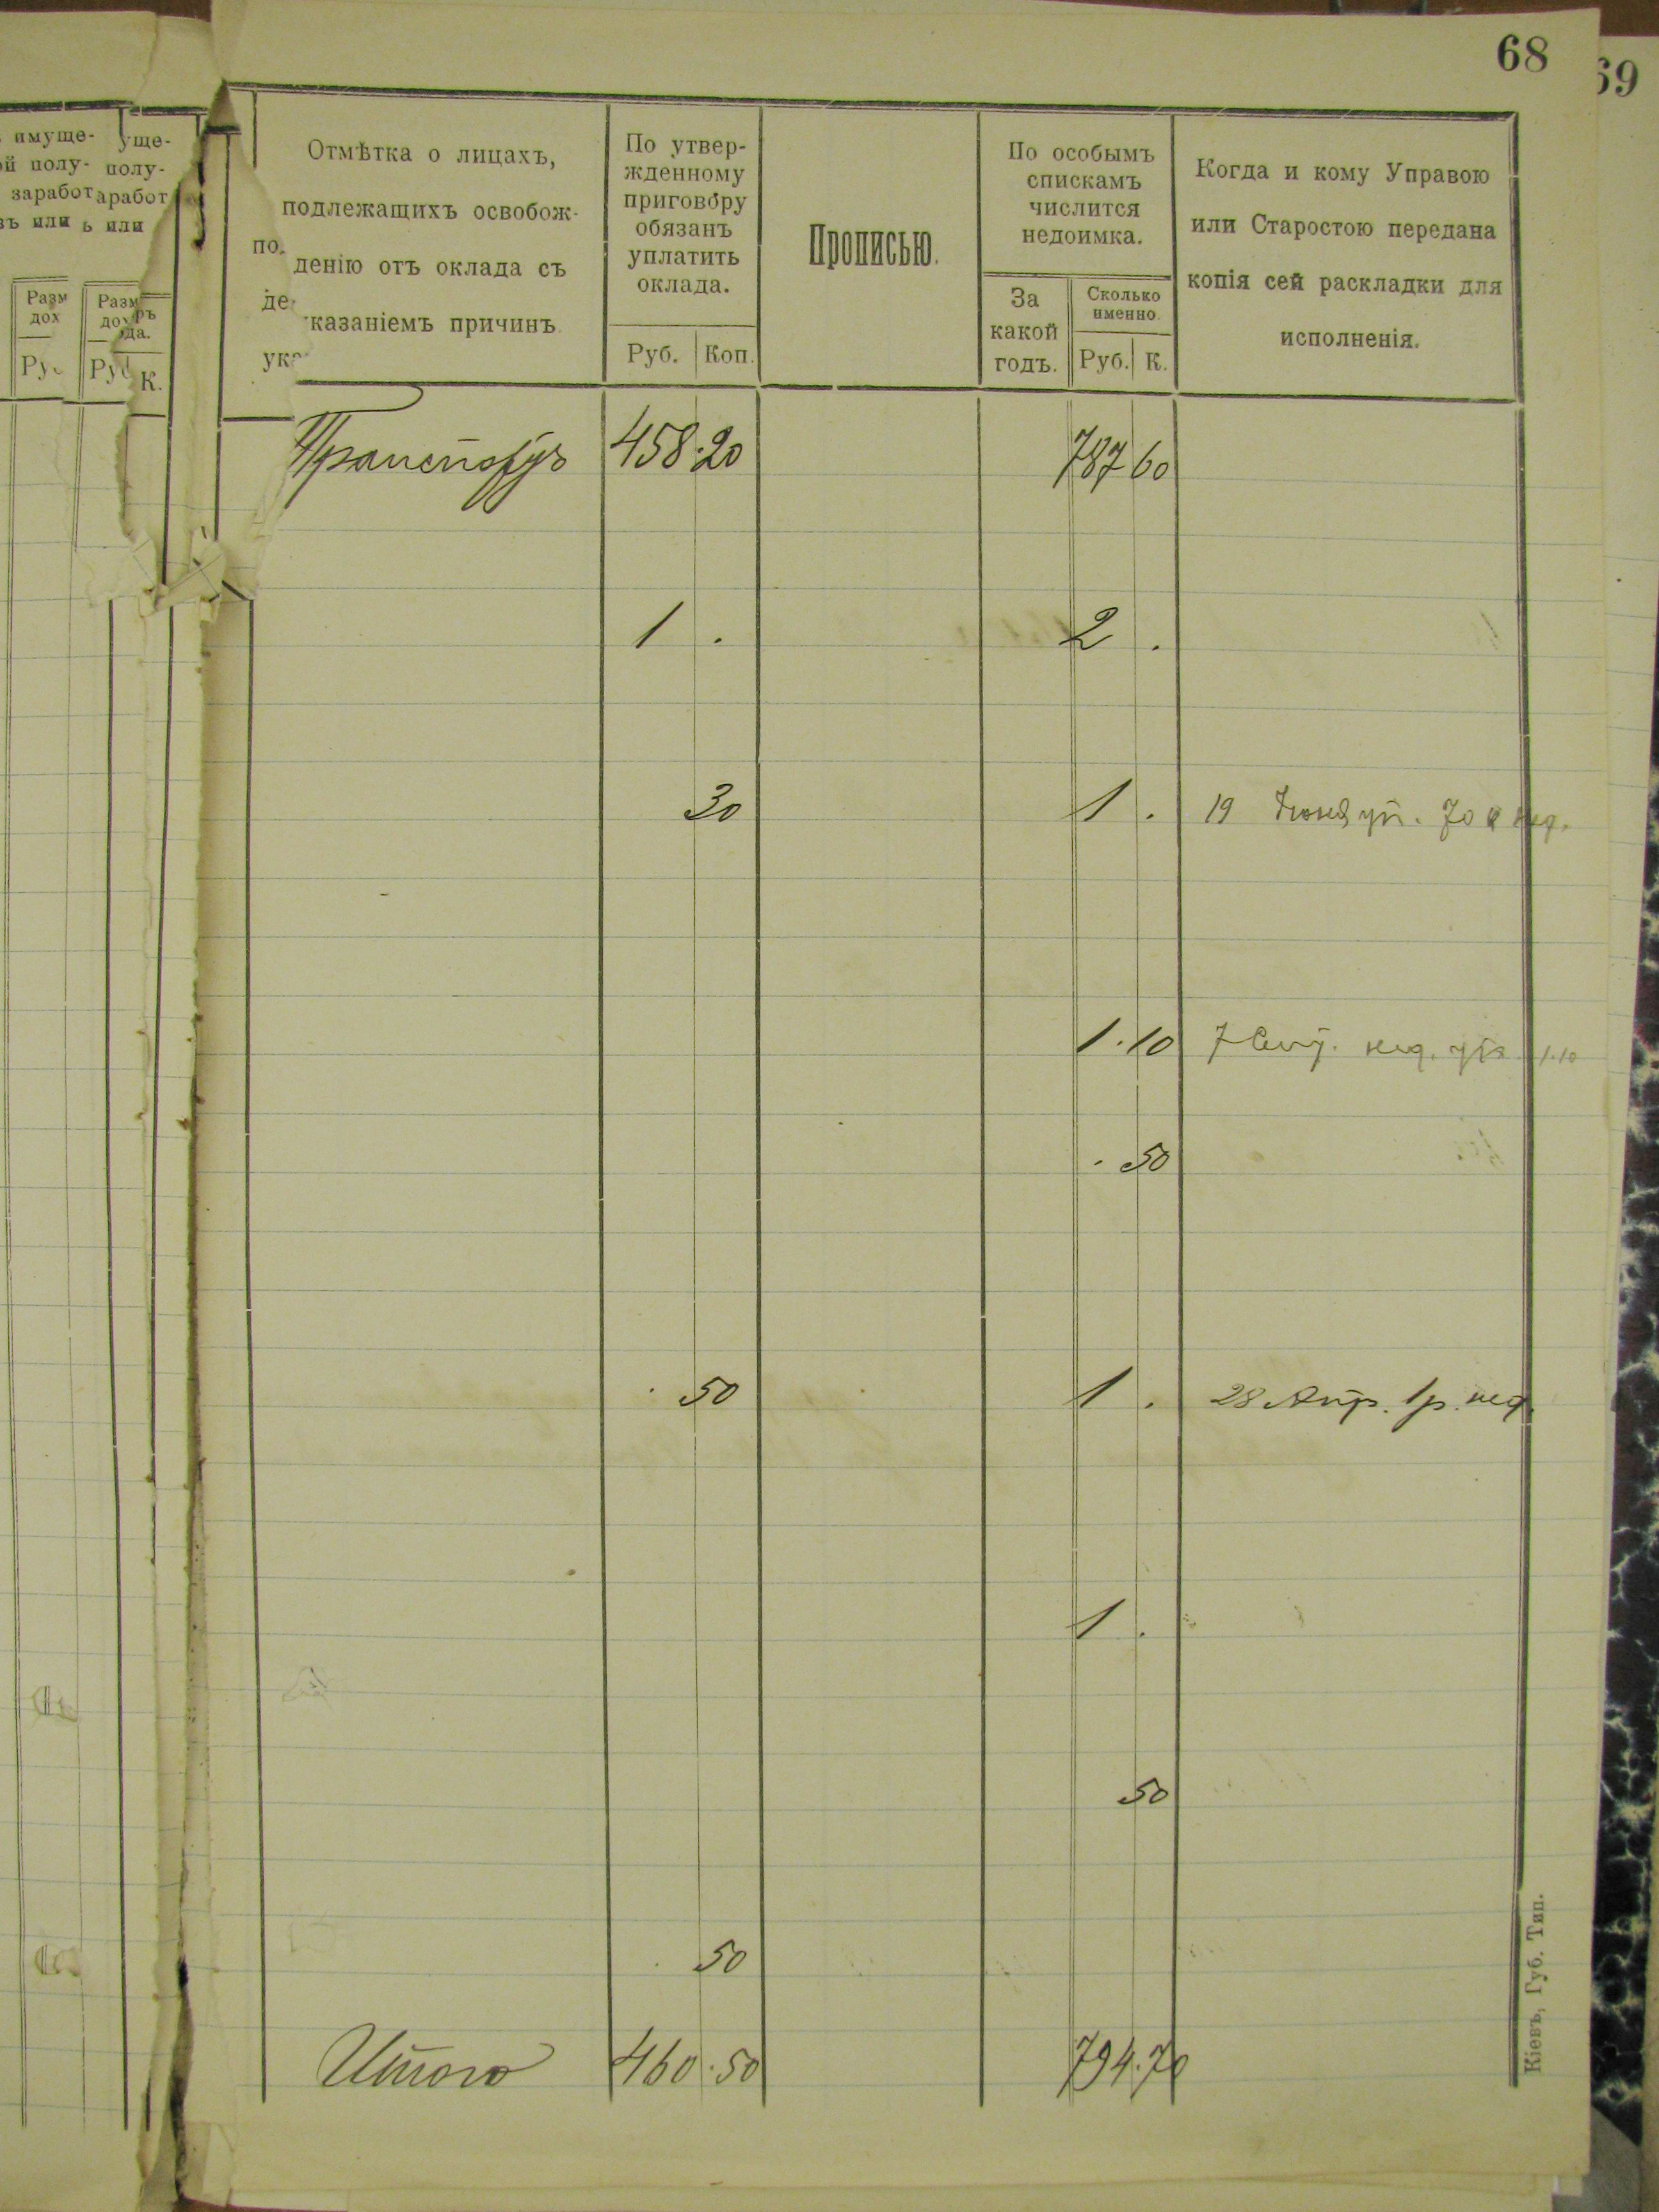 68
69
имуще-
уще-
полу-
полу-
заработ
аработ
или
ь или
Разм
дох
Разм
дох
ръ
да.
Ру
Ру
К.
Отмѣтка о лицахъ,
подлежащихъ освобож-
по
денію отъ оклада съ
де
казаніемъ причинъ.
ука
По утвер-
жденному
приговору
обязанъ
уплатить
оклада.
Руб. Коп.
Прописью.
По особымъ
спискамъ
числится
недоимка.
За
какой
годъ.
Сколько
именно.
Руб. К.
Когда и кому Управою
или Старостою передана
копія сей раскладки для
исполненія.
Транспортъ 458.20 787 60
1 . 2 .
30 1 . 19 Іюня уп. 70 к нед.
1.10 7 Сент. нед. 1.10
. 50
. 50 1 . 28 Апр. 1р. нед.
1 .
50
. 50
Итого 460.50 794.70
Кіевъ, Губ. Тип.